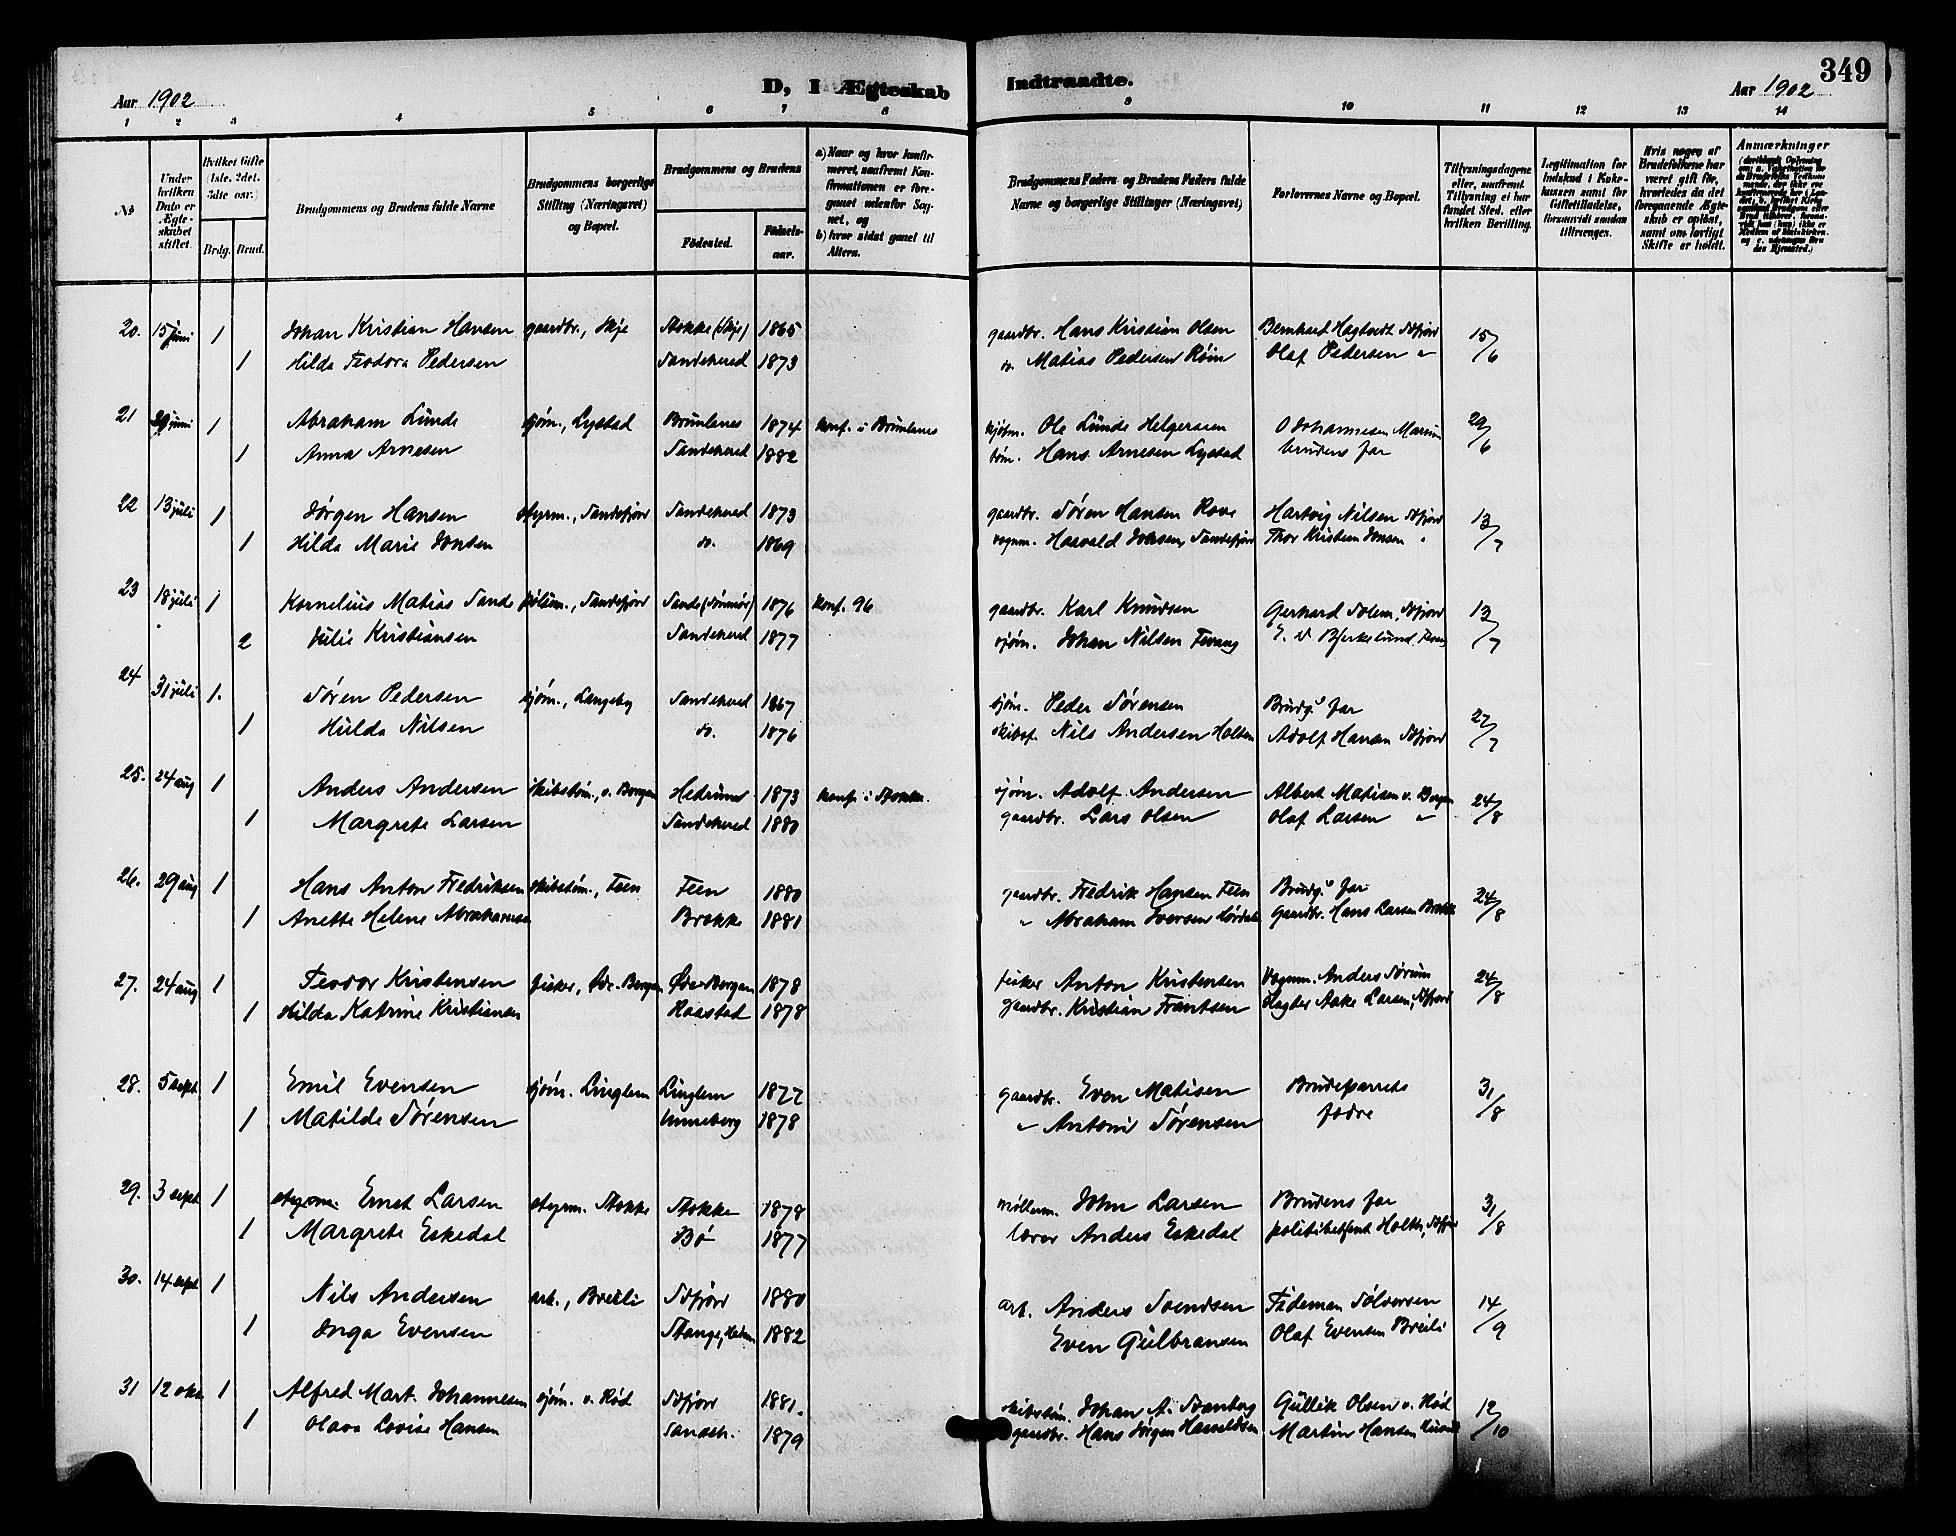 349
Aar 1902 D, I Ægteskab Indtraadte. Aar 1902
1 2 3 4 5 6 7 8 9 10 11 12 13 14
№
Under hvilken Dato er Ægteskabet stiftet.
Hvilket Gifte (1ste, 2det, 3die osv.)
Brdg. Brud.
Brudgommens og Brudens fulde Navne
Brudgommens borgerlige Stilling (Næringsvei) og Bopæl.
Brudgommens og Brudens
Fødested. Fødselsaar.
a) Naar og hvor konfirmeret, saafremt Konfirmationen er foregaaet udenfor Sognet, og
b) hvor sidst gaaet til Alters.
Brudgommens Faders og Brudens Faders fulde Navne og borgerlige Stillinger (Næringsvei)
Forlovernes Navne og Bopæl.
Tillysningsdagene eller, saafremt Tillysning ei har fundet Sted, efter hvilken Bevilling.
Legitimation for Indskud i Enkekassen samt for Giftetilladelse, forsaavidt saadan tiltrænges.
Hvis nogen af Brudefolkene har været gift før, hvorledes da det foregaaende Ægteskab er opløst, samt om lovligt Skifte er holdt.
Anmærkninger
20. 15 juni 1 Johan Kristian Hansen gaardbr., Skje Stokke (Skje) 1865 gaardbr. Hans Kristian Olsen Bernhard Hagtvedt Sdfjord 15/6
1 Hilda Teodora Pedersen Sandeherred 1873 do. Matias Pedersen Røin Olaf Pedersen "
21 29 juni 1 Abraham Lunde sjøm., Lystad Brunlanes 1874 konf. i Brunlanes Ole Lunde Helgersen O Johannesen 29/6
1 Anna Arnesen Sandeherred 1882 tøm. Hans Arnesen Lystad brudens far
22 13 juli 1 Jørgen Hansen styrm., Sandefjord Sandeherred 1873 gaardbr. Søren Hansen Rove Hartvig Nilsen Sdfjord 13/7
1 Hilda Marie Jonsen do. 1869 vognm. Haavald Johnsen, Sandefjord Thor Kristian Jonsen "
23 18 juli 1 Kornelius Matias Sande, Sandefjord Sande (Søndmør) 1876 konf. 96 gaardbr. Karl Knudsen Gerhard Solem, Sdfjord 13/7
2 Julie Kristiansen Sandeherred 1877 sjøm. Johan Nilsen Fevang Bjerkelund
24 31 juli 1. Søren Pedersen sjøm., Langeby Sandeherred 1867 sjøm. Peder Sørensen Brudg.s far 27/7
1 Hulda Nilsen do. 1876 skibsf. Nils Andersen Holtan Adolf Hansen Sdfjord
25. 24 aug 1 Anders Andersen skibstøm., v. Borgen Hedrum 1873 konf. i Stokke sjøm. Adolf Andersen Albert Matisen v. Borgen 24/8
1 Margrete Larsen Sandeherred 1880 gaardbr. Lars Olsen Olaf Larsen "
26. 29 aug 1 Hans Anton Fredriksen skibstøm., Feen Feen 1880 gaardbr. Fredrik Hansen Feen Brudg.s far 24/8
1 Anette Helene Abrahamsen Brekke 1881 " Abraham Iversen Gaardbr. Hans Larsen Brekke
27. 24 aug 1 Teodor Kristensen fisker, Øde-Borgen Øde-Borgen 1878 fisker Anton Kristensen Vognm. Anders Sørum 24/8
1 Hilda Katrine Kristiansen Raastad 1878 gaardbr. Kristian Frantsen Slagter Aake Larsen, Sdfjord
28. 5 sept. 1 Emil Evensen sjøm. Linglem Linglem 1877 gaardbr. Even Matisen Brudeparrets 31/8
1 Matilde Sørensen Unneberg 1878 " Antoni Sørensen fædre
29. 3 sept. 1 styrm. Ernst Larsen styrm. Stokke Stokke 1878 møllerm. John Larsen Brudens far 31/8
1 Margrete Eskedal Bø 1877 lærer Anders Eskedal politibetjent Holth, Sdfjor
30. 14 sept 1 Nils Andersen arb., Breili Sdfjord 1880 arb. Anders Svendsen Tideman Sølversen 14/9
1 Inga Evensen Stange, Hedm. 1882 Even Gulbransen Olaf Evensen Breili
31 12 okt 1 Alfred Mart. Johannesen sjøm. v. Rød Sdfjord 1881. skibstøm. Johan A. Stenberg Gullik Olsen v. Rød 12/10
1 Olava Lovise Hansen Sandeh. 1879 gaardbr. Hans Jørgen Haavaldsen Martin Hansen